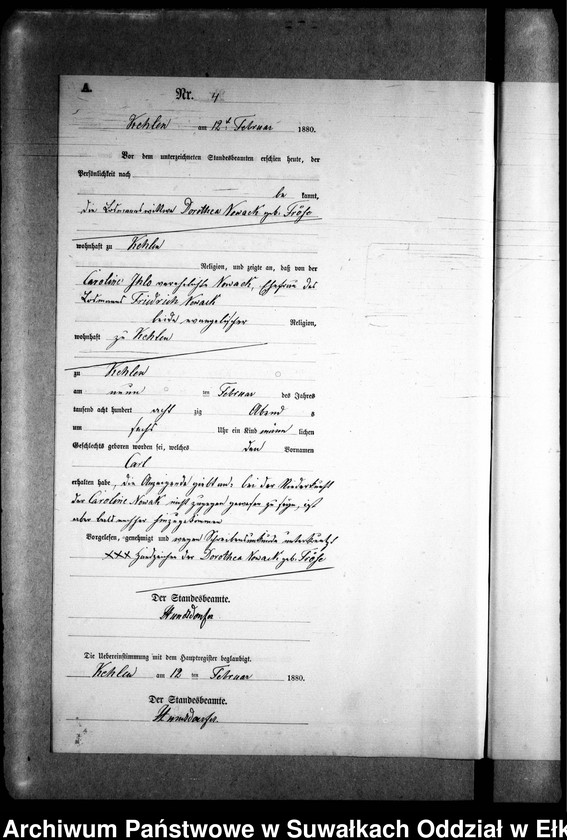 A.
Nr. 4
Kehlen am 12t Februar 1880.
Vor dem unterzeichneten Standesbeamten erschien heute, der
Persönlichkeit nach
be kannt,
die Losmannswittwe Dorothea Nowack geb. Fröse
wohnhaft zu Kehlen
Religion, und zeigte an, daß von der
Caroline Ihlo verehelichte Nowack, Ehefrau des
Losmanns Friedrich Nowack
beide evangelischer Religion,
wohnhaft zu Kehlen
zu Kehlen
am neun ten Februar des Jahres
tausend acht hundert acht zig Abend s
um sechs Uhr ein Kind männ lichen
Geschlechts geboren worden sei, welches den Vornamen
Carl
erhalten habe, die Anzeigende giebt an: bei der Niederkunft
der Caroline Nowak nicht zugegen gewesen zu sein, ist
aber bald nachher hinzugekommen
Vorgelesen, genehmigt und wegen Schreibensunkunde unterkreuzt
××× Handzeichen der Dorothea Nowack geb. Fröse
Der Standesbeamte.
Die Uebereinstimmung mit dem Hauptregister beglaubigt.
Kehlen am 12 ten Februar 1880.
Der Standesbeamte.
Archiwum Państwowe w Suwałkach Oddział w Ełk